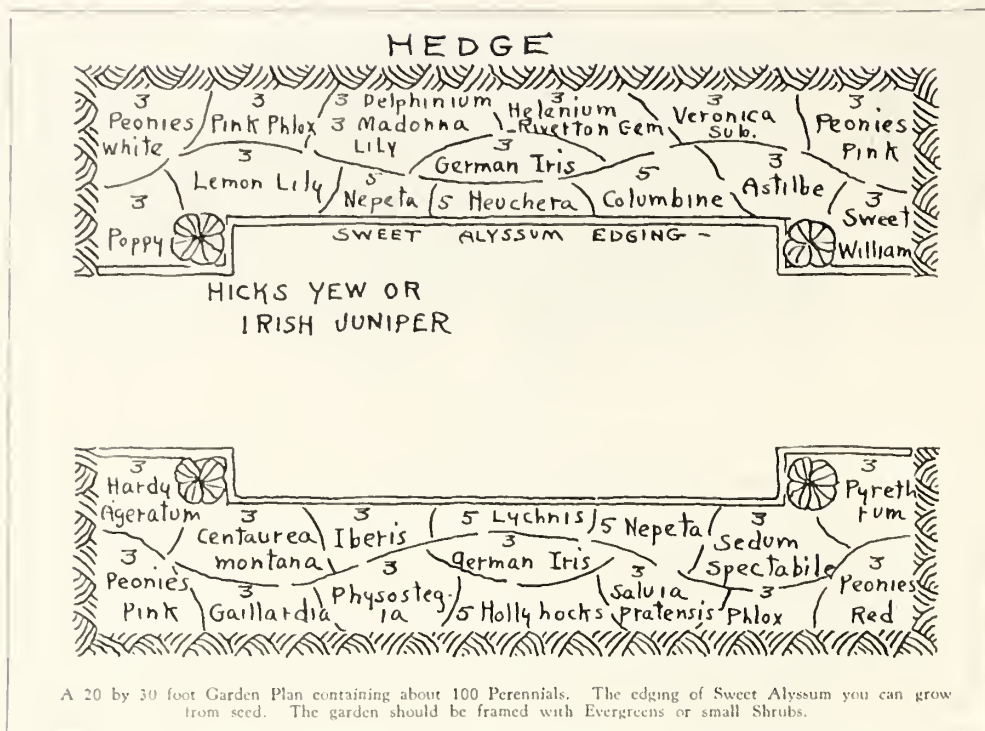 HEDGE
3
Peonies
White
3
Pink Phlox
3 Delphinium
3 Madonna
LILY
3
Helenium
Riverton Gem
3
Veronica
Sub.
3
Peonies
Pink
3
Lemon Lily
3
German Iris
3
Astilbe
3
Poppy
5
Nepeta
5 Heuchera
5
Columbine
3
Sweet
William
SWEET ALYSSUM EDGING -
HICKS YEW OR
IRISH JUNIPER
3
Hardy
Ageratum
3
Centaurea
montana
3
Iberis
5 Lychnis
5 Nepeta
3
Sedum
Spectabile
3
Pyreth
rum
3
Peonies
Pink
3
Gaillardia
3
Physosteg-
ia
3
german Iris
5 Hollyhocks
3
Salvia
pratensis
3
Phlox
3
Peonies
Red
A 20 by 30 foot Garden Plan containing about 100 Perennials. The edging of Sweet Alyssum you can grow
from seed. The garden should be framed with Evergreens or small Shrubs.